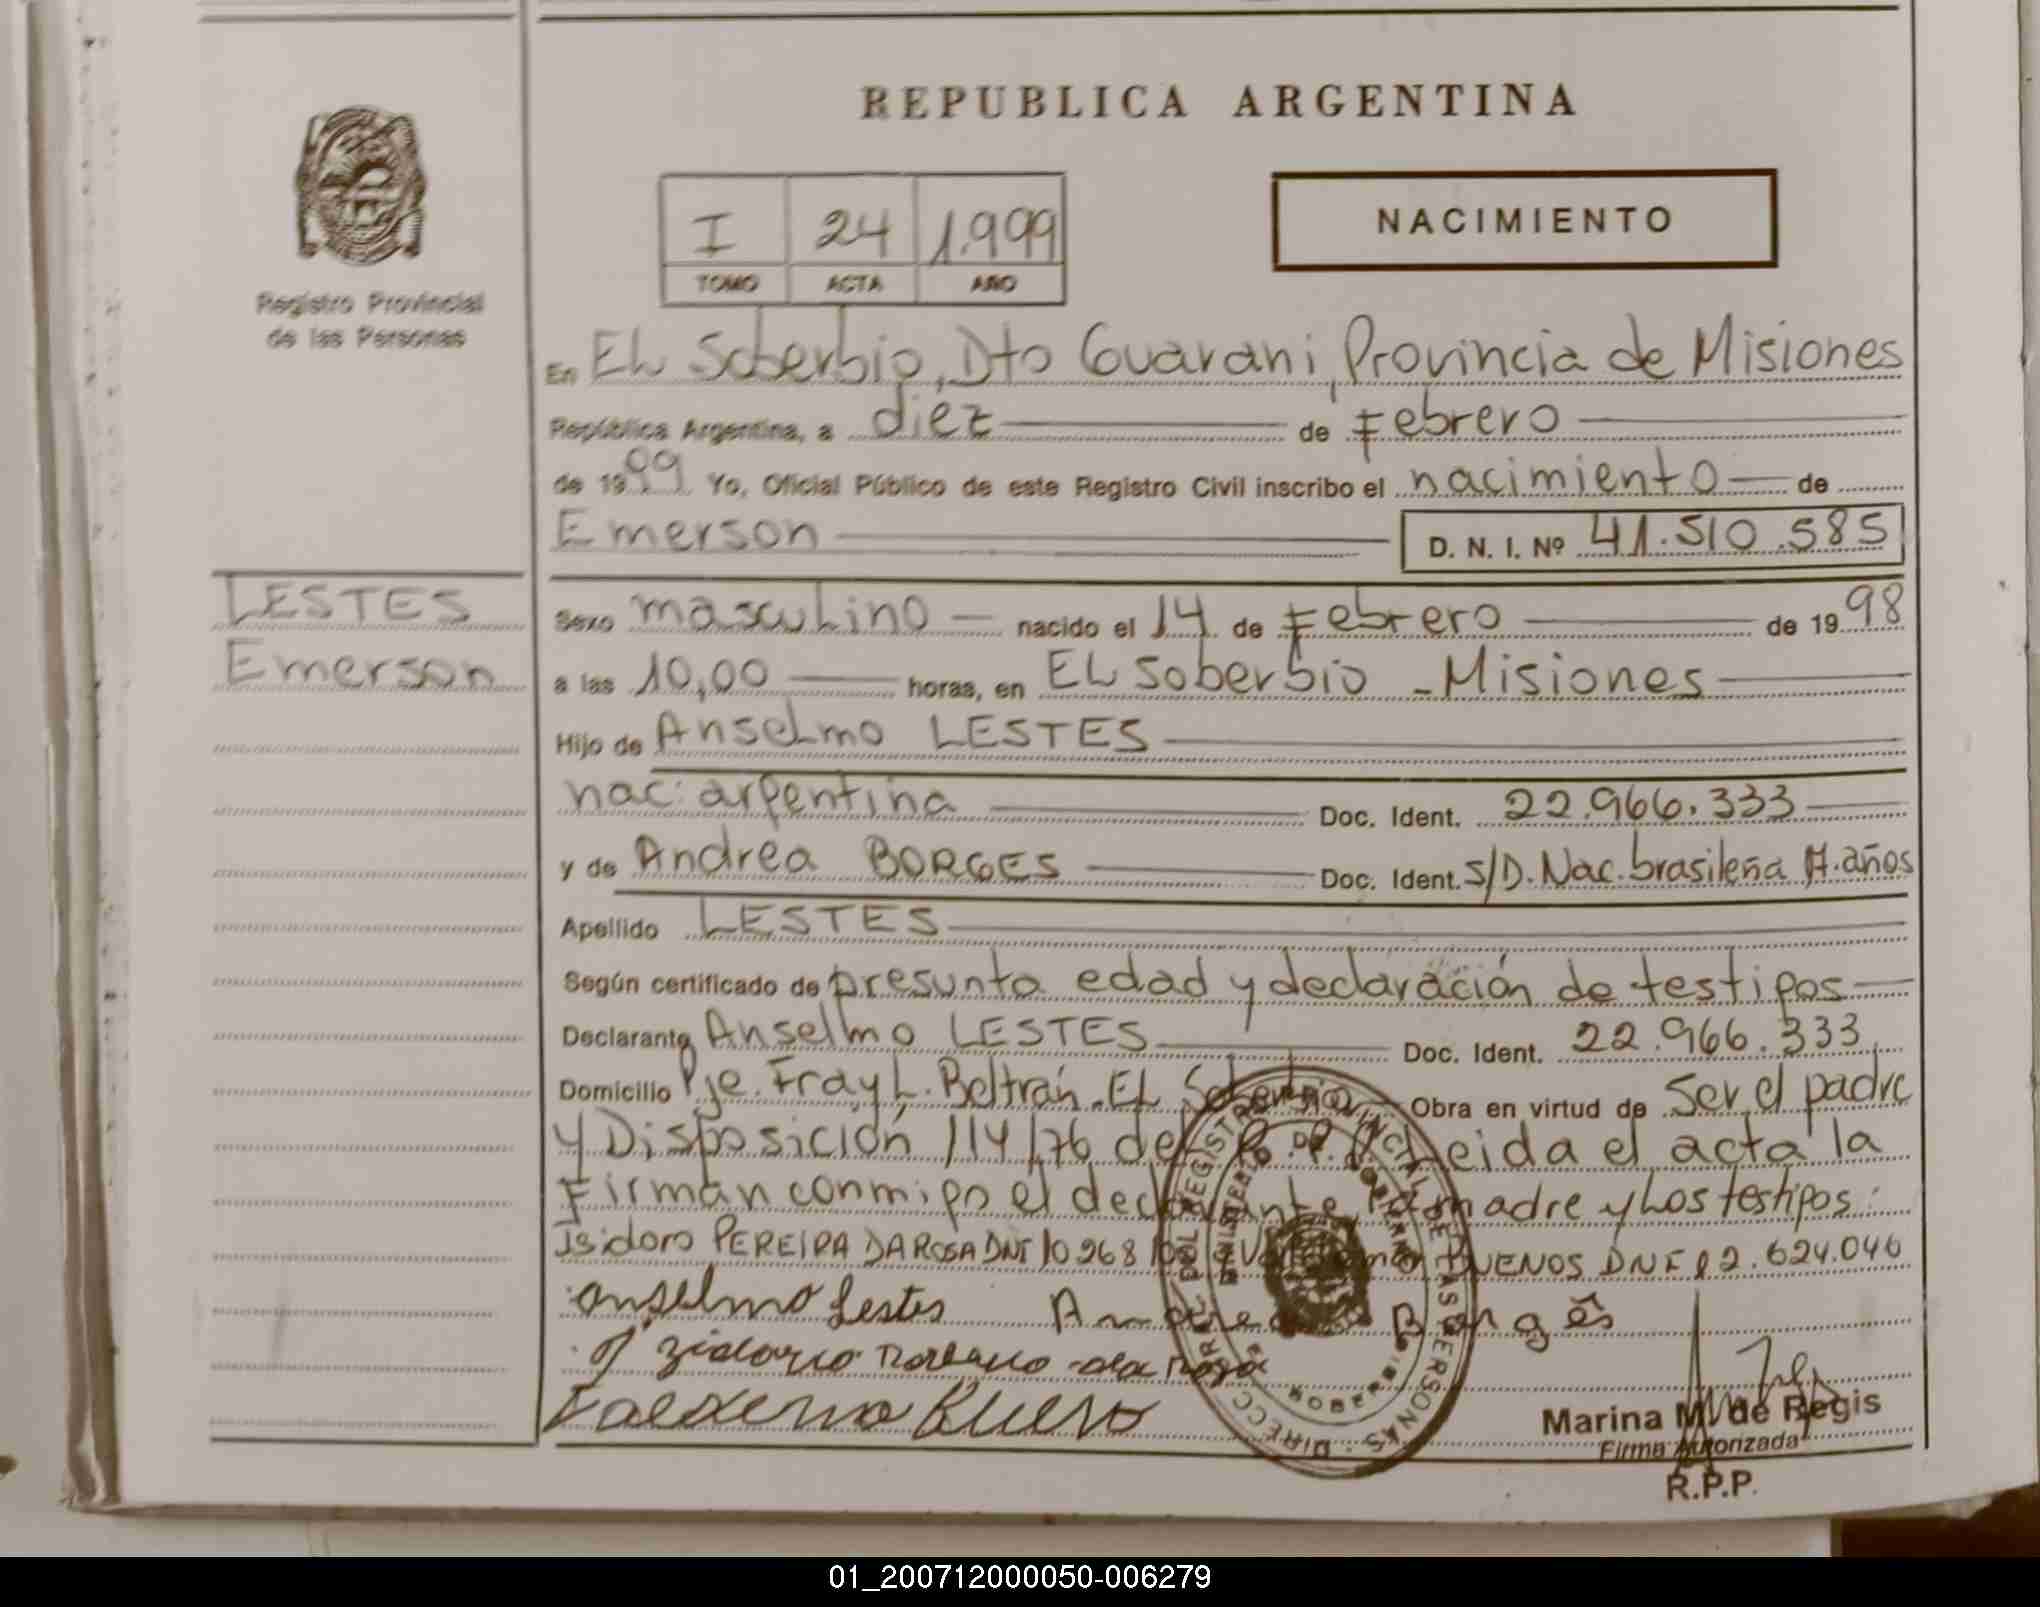 REPUBLICA ARGENTINA
I 24 1.999
TOMO ACTA AÑO
NACIMIENTO
Registro Provincial
de las Personas
En EL Soberbio, Dto Guarani, Provincia de Misiones
República Argentina, a diez de Febrero
de 1999 Yo, Oficial Público de este Registro Civil inscribo el nacimiento de
Emerson D. N. I. Nº 41.510.585
LESTES
Emerson
Sexo masculino nacido el 14 de Febrero de 1998
a las 10,00 horas, en EL Soberbio - Misiones
Hijo de Anselmo LESTES
nac: argentina Doc. Ident. 22.966.333
y de Andrea BORGES Doc. Ident. S/D. Nac. brasileña 17. años
Apellido LESTES
Según certificado de presunta edad y declaración de testigos
Declarante Anselmo LESTES Doc. Ident. 22.966.333
Domicilio Pje. Fray L. Beltrán. EL Soberbio Obra en virtud de Ser el padre
y Disposición 114/76 del R.P.P. Leida el acta la
Firman conmigo el declarante, la madre y Los testigos:
Isidoro PEREIRA DA ROSA DNI 10 268 BUENOS DNI 12.624.046
anselmo Lestes Andrea Borges
da rosa
Bueno
DIRECC. GRAL. DEL REGISTRO PROVINCIAL DE LAS PERSONAS
MINISTERIO DE GOBIERNO
MISIONES
Marina M. de Regis
Firma Autorizada
R.P.P.
01_200712000050-006279